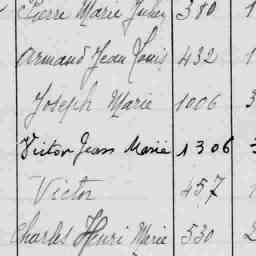 Pierre Marie 380 1
Armand Jean Louis 432 1
Joseph Marie 1006 3
Victor Jean Marie 1306
Victor 457 1
Charles Henri Marie 530 2